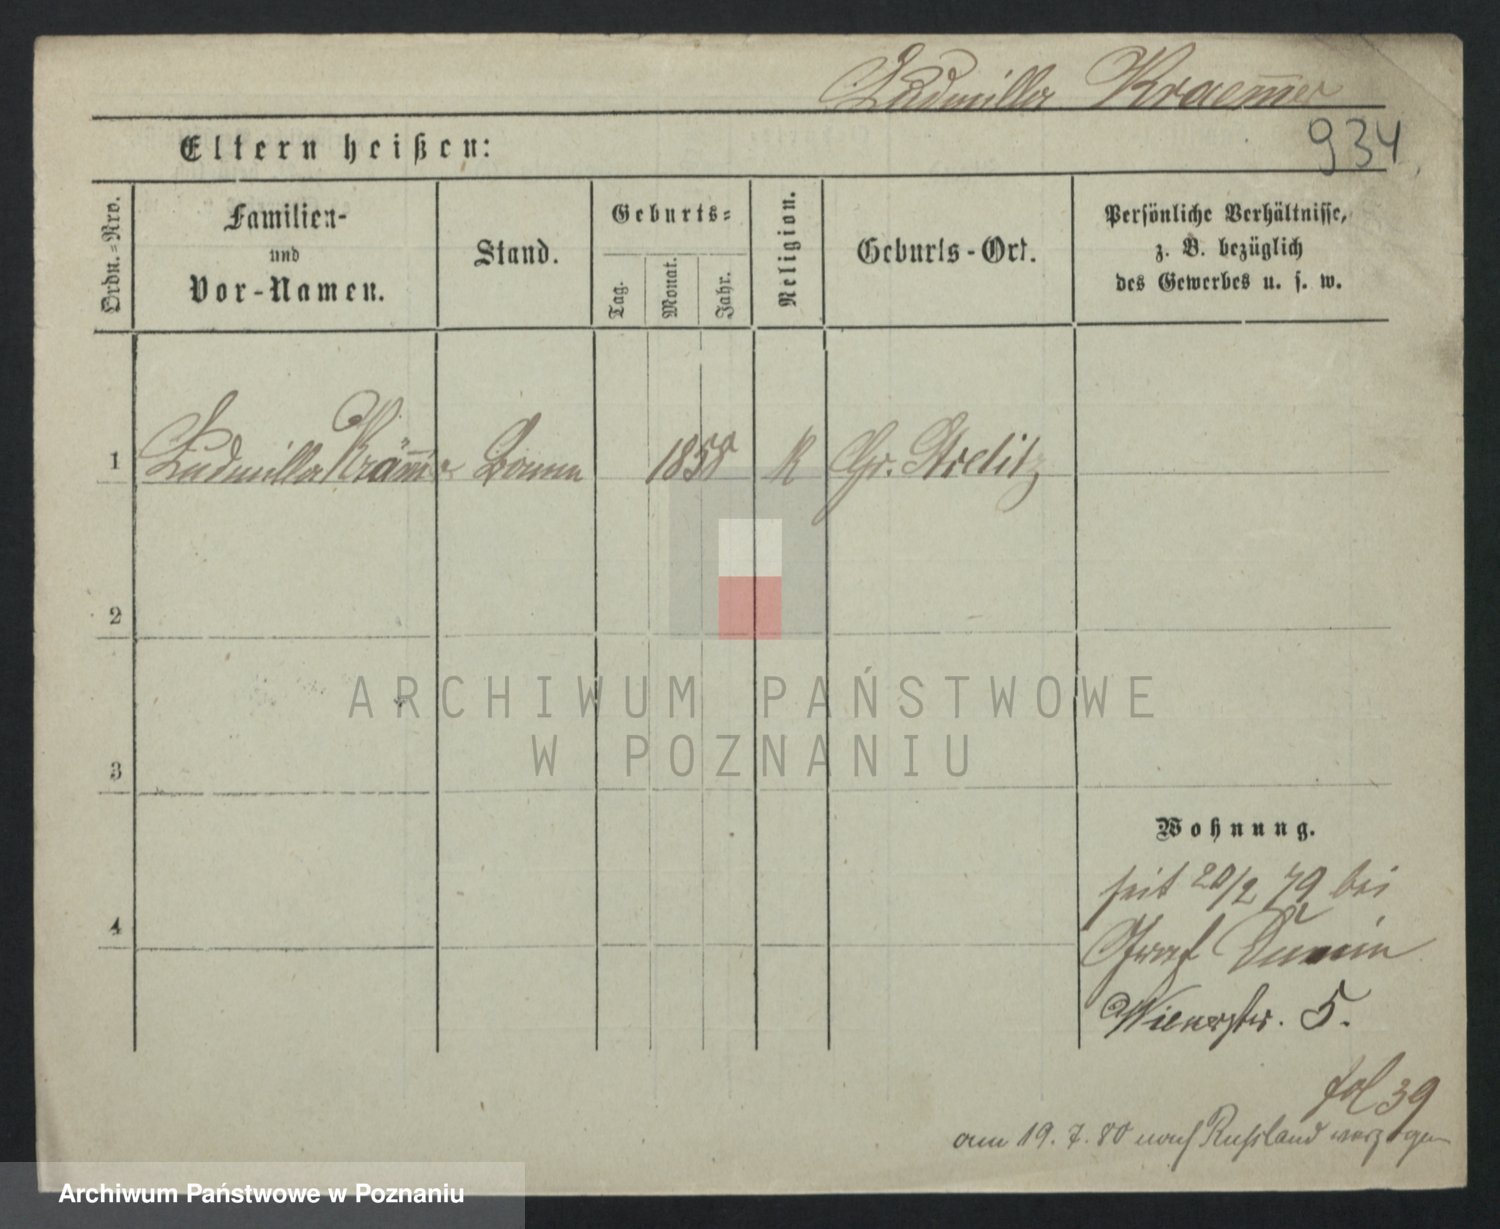 Ludmilla Kraem̅er
934
Eltern heißen:
Ordn.=Nro.
Familien-
und
Vor-Namen.
Stand.
Geburts=
Tag.
Monat.
Jahr.
Religion.
Geburts-Ort.
Persönliche Verhältnisse,
z. B. bezüglich
des Gewerbes u. s. w.
1 Ludmilla Kräm̅er Bonne 1858 K Gr. Strelitz
2
3
4
Wohnung.
seit 20/2 79 bei
Graf Dunin
Wienerstr. 5.
fol 39
am 19. 7. 80 nach Russland verzogen
ARCHIWUM PAŃSTWOWE
W POZNANIU
Archiwum Państwowe w Poznaniu